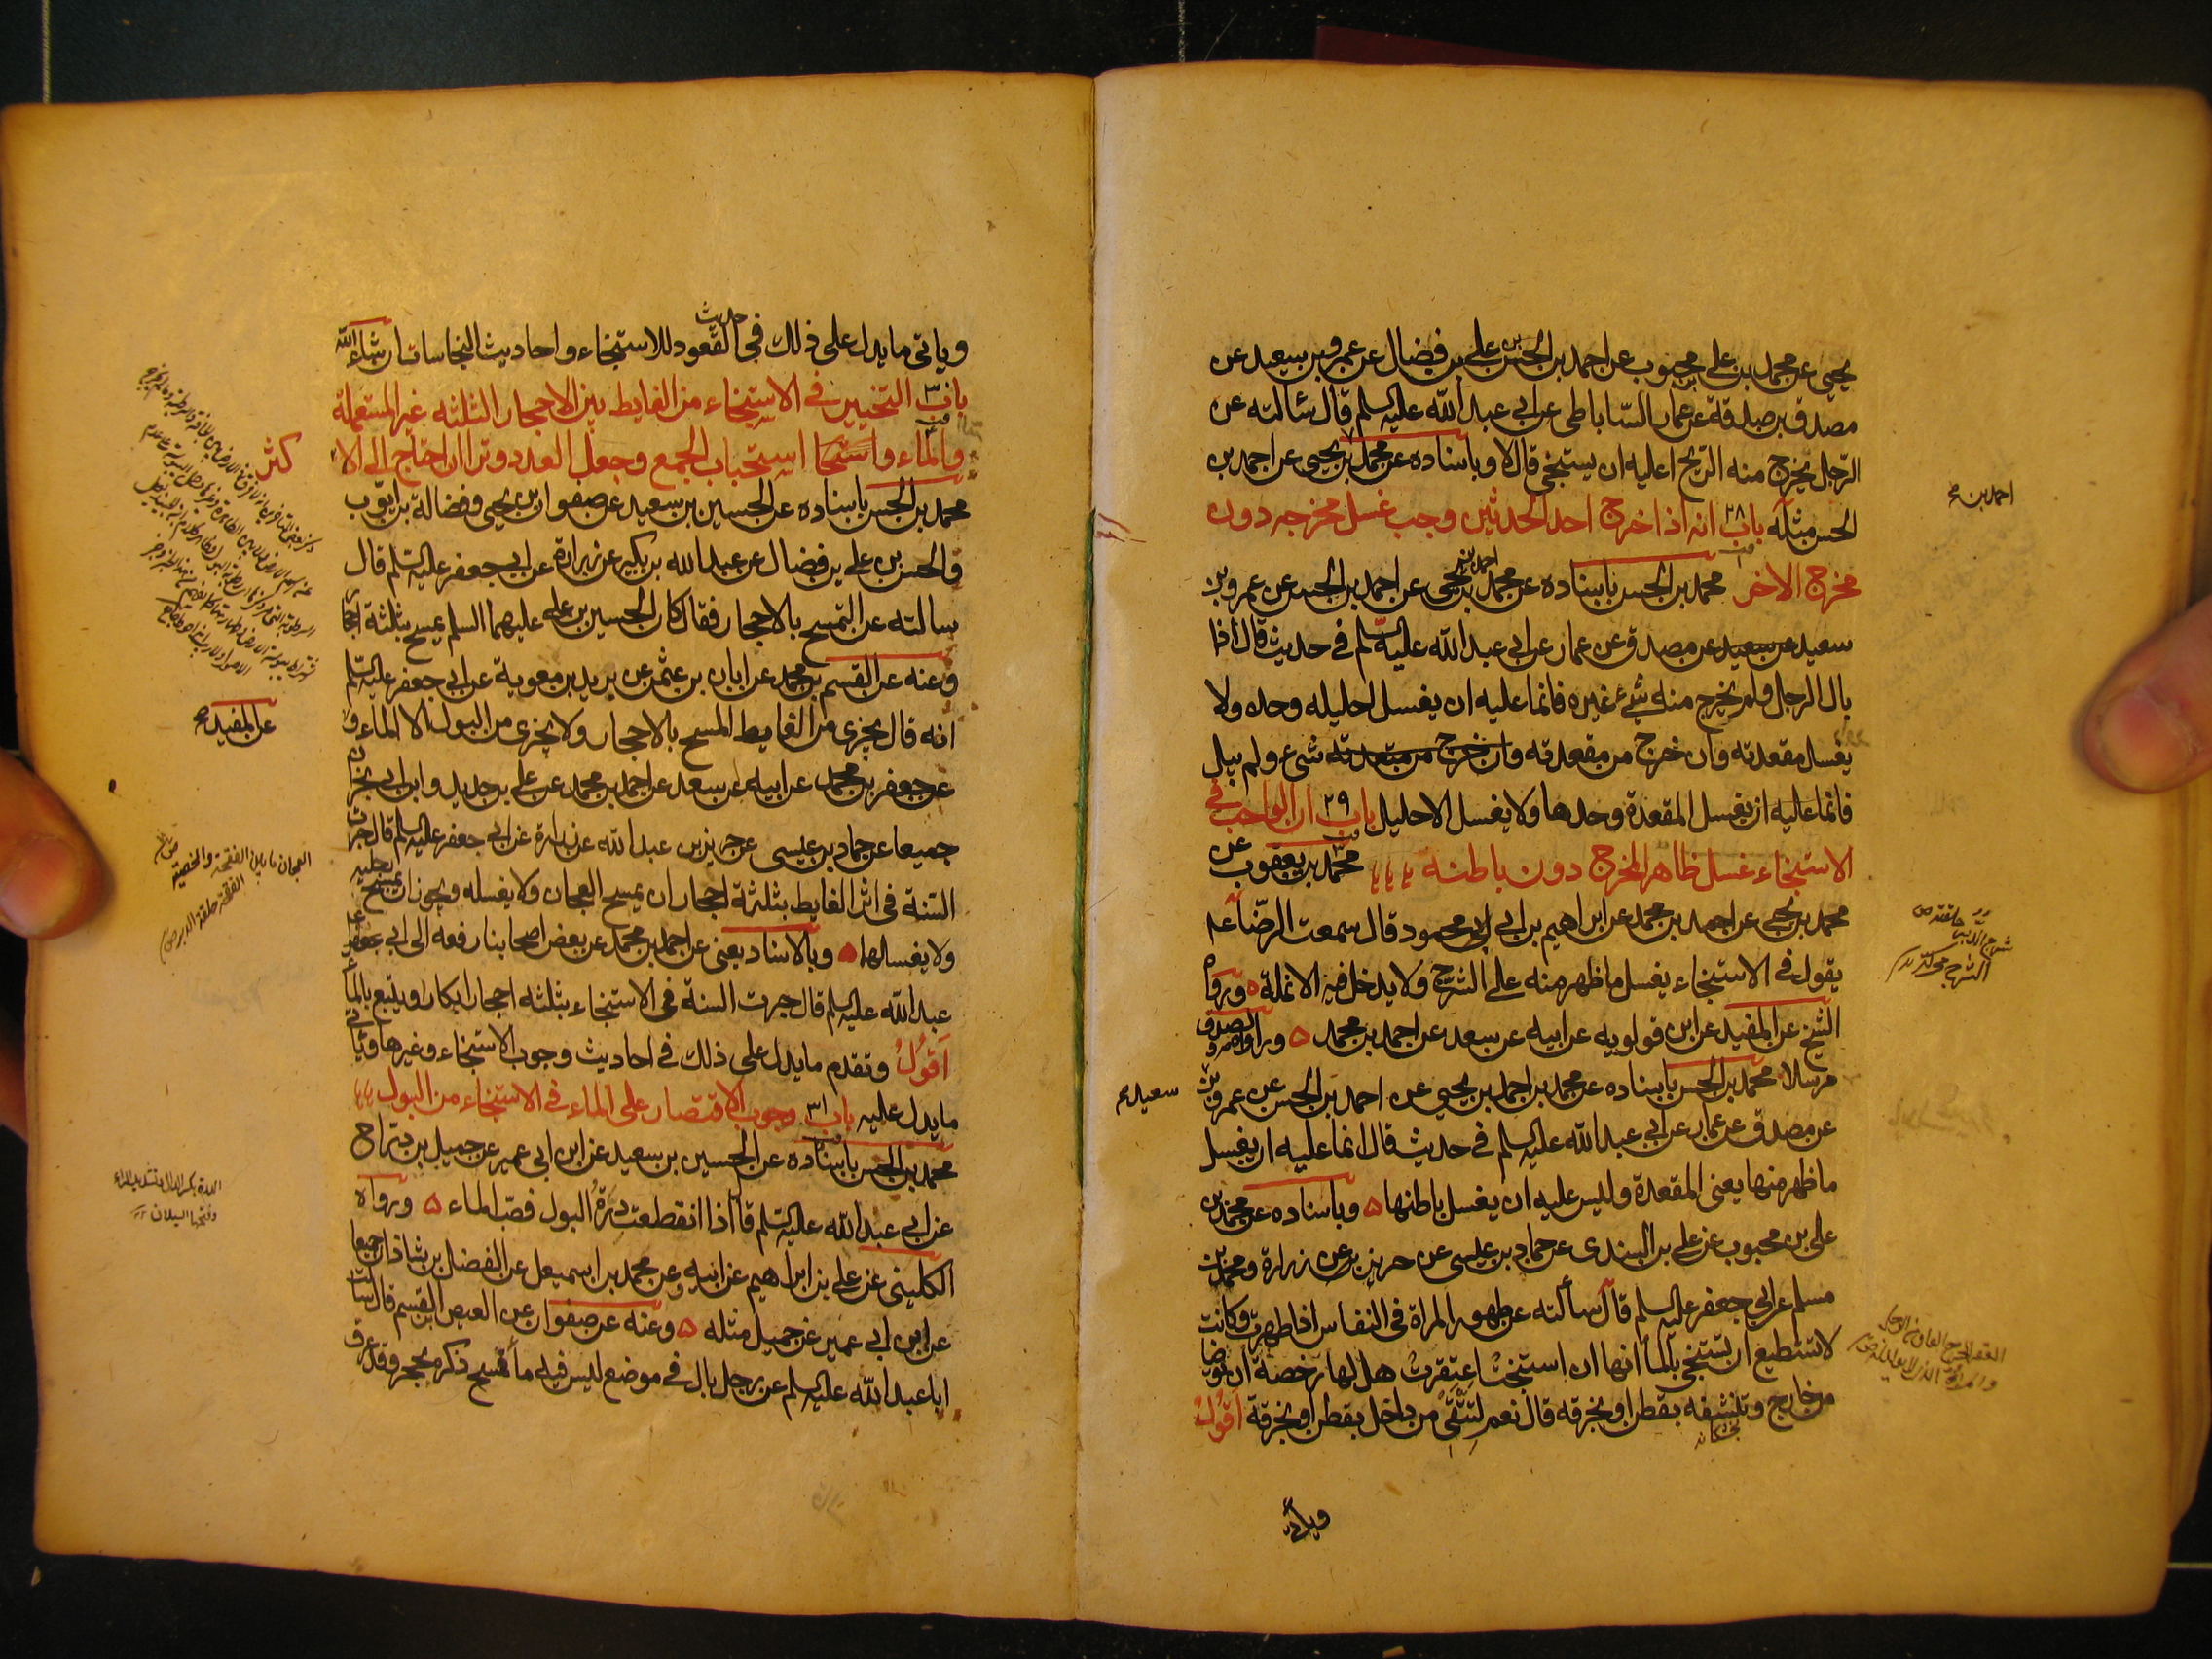 يحيى عن محمد بن علي بن محبوب عن احمد بن الحسن بن علي بن فضال عن عمرو بن سعيد عن
مصدق بن صدقة عن عمار الساباطى عن ابى عبد الله عليه السلم قال سالته عن
الرجل يخرج منه الريح اعليه ان يستنجى قال لا وباسناده عن محمد بن يحيى عن احمد بن
الحسن مثله باب ٢٨ انه اذا خرج احد الحدثين وجب غسل مخرجه دون
مخرج الاخر محمد بن الحسن باسناده عن محمد بن احمد بن يحيى عن احمد بن الحسن عن عمرو بن
سعيد عن مصدق عن عمار عن ابى عبد الله عليه السلم فى حديث قال اذا
بال الرجل ولم يخرج منه شئ غيره فانما عليه ان يغسل احليله وحده ولا
يغسل مقعدته وان خرج من مقعدته وان خرج من مقعدته شئ ولم يبل
فانما عليه ان يغسل المقعدة وحدها ولا يغسل الاحليل باب ٢٩ ان الواجب فى
الاستنجاء غسل ظاهر المخرج دون باطنه محمد بن يعقوب عن
محمد بن يحيى عن احمد بن محمد عن ابراهيم بن ابى محمود قال سمعت الرضا ع
يقول فى الاستنجاء يغسل ما ظهر منه على الشرج ولا يدخل فيه الانملة ٥ ورواه
الشيخ عن المفيد عن ابن قولويه عن ابيه عن سعد عن احمد بن محمد ٥ ورواه الصدوق
مرسلا محمد بن الحسن باسناده عن محمد بن احمد بن يحيى عن احمد بن الحسن عن عمرو بن
سعيد
عن مصدق عن عمار عن ابى عبد الله عليه السلم فى حديث قال انما عليه ان يغسل
ما ظهر منها يعنى المقعدة وليس عليه ان يغسل باطنها ٥ وباسناده عن محمد بن
على بن محبوب عن على بن السندى عن حماد بن عيسى عن حريز عن زرارة ومحمد بن
مسلم عن ابى جعفر عليه السلم قال سألته عن طهور المراة فى النفاس اذا طهرت وكانت
لا تستطيع ان تستنجى بالماء انها ان استنجت اعتقرت هل لها رخصة ان توضأ
من خارج وتنشفه بقطن او بخرقه قال نعم لتنقى من داخل بقطن او بخرقة اقول
احمد بن
وياتى ما يدل على ذلك فى حديث القعود للاستنجاء واحاديث النجاسات ان شاء الله
باب ٣٠ التخيير فى الاستنجاء من الغايط بين الاحجار الثلثه غير المستعملة
والماء واستحباب الجمع وجعل العدد وترا ان احتاج الى الا
كثر
محمد بن الحسن باسناده عن الحسين بن سعيد عن صفوان بن يحيى وفضالة بن ايوب
والحسن بن على بن فضال عن عبد الله بن بكير عن زرارة عن ابى جعفر عليه السلم قال
سالته عن التمسح بالاحجار فقال كان الحسين بن على عليهما السلم يمسح بثلثة احجار
وعنه عن القسم بن محمد عن ابان بن عثمن عن بريد بن معوية عن ابى جعفر عليه السلم
انه قال يجزى من الغايط المسح بالاحجار ولا يجزى من البول الا الماء و
عن المفيد
عن جعفر بن محمد عن ابيه عن سعد عن احمد بن محمد عن على بن حديد وابن ابى نجران
جميعا عن حماد بن عيسى عن حريز بن عبد الله عن زرارة عن ابى جعفر عليه السلم قال جرت
السنة فى اثر الغايط بثلثة احجار ان يمسح العجان ولا يغسله ويجوز ان يمسح رجليه
ولا يغسلهما ٥ وبالاسناد يعنى عن احمد بن محمد عن بعض اصحابنا رفعه الى ابى
عبد الله عليه السلم قال جرت السنة فى الاستنجاء بثلثه احجار ابكار ويتبع بالماء
اقول وتقدم ما يدل على ذلك فى احاديث وجوب الاستنجاء وغيرها وياتى
ما يدل عليه باب ٣١ وجوب الاقتصار على الماء فى الاستنجاء من البول
محمد بن الحسن باسناده عن الحسين بن سعيد عن ابن ابى عمير عن جميل بن دراج
عن ابى عبد الله عليه السلم قال اذا انقطعت درة البول فصب الماء ٥ ورواه
الكلينى عن على بن ابراهيم عن ابيه وعن محمد بن اسمعيل عن الفضل بن شاذان جميعا
عن ابن ابى عمير عن جميل مثله ٥ وعنه عن صفوان عن العيص ابن القسم قال سالت
ابا عبد الله عليه السلم عن رجل بال فى موضع ليس فيه ماء فمسح ذكره بحجر وقد عرق
العجان ما بين الفقحة والخصية
الفقحة حلقة الدبر
الدرة بكسر الدال وتشديد الراء
وفتحها السيلان